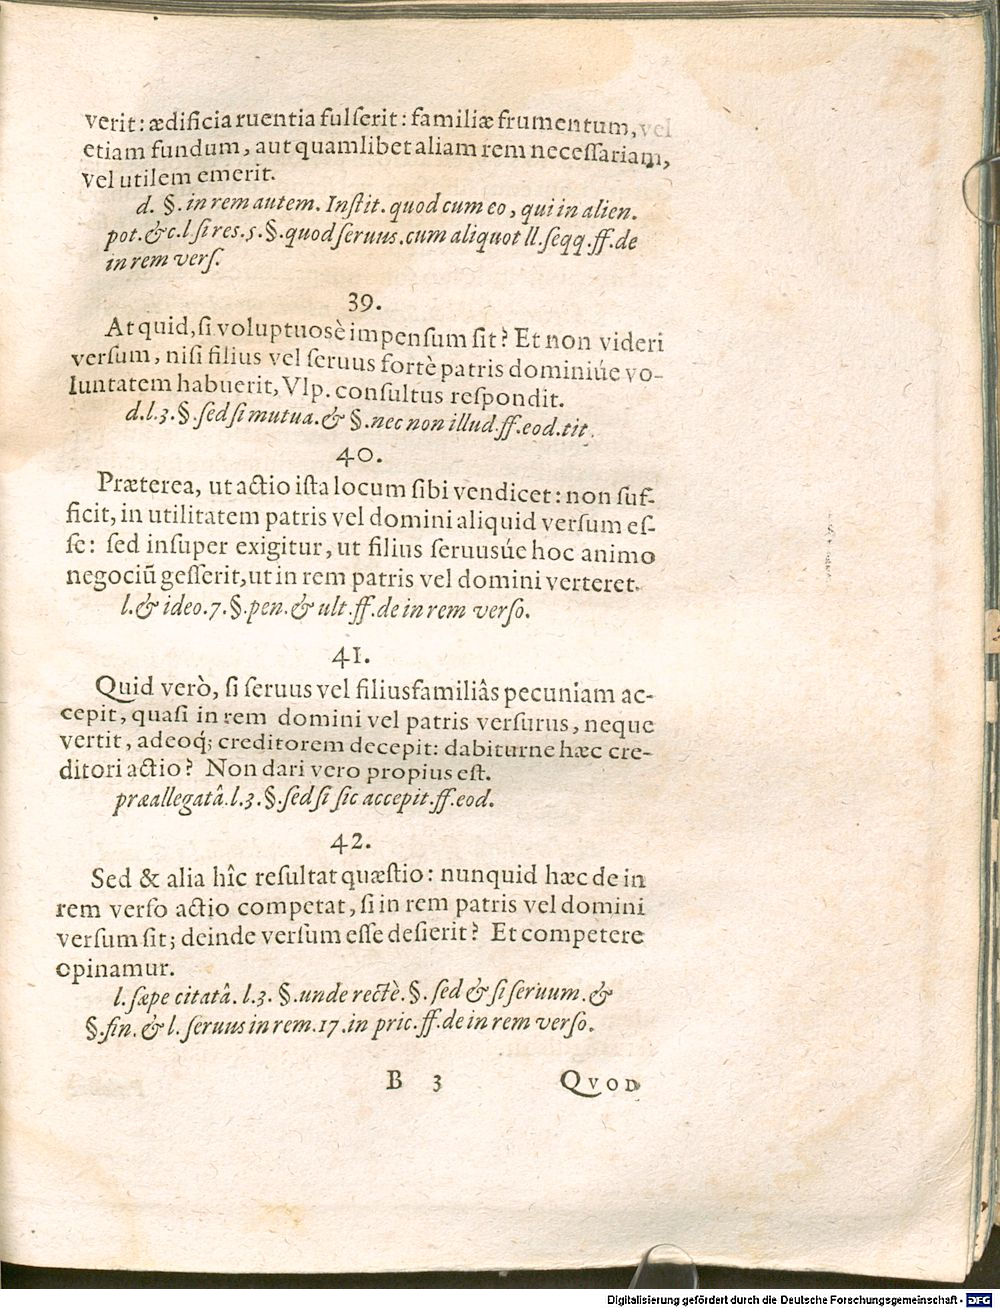 verit: ædificia ruentia fulserit: familiæ frumentum, vel
etiam fundum, aut quamlibet aliam rem necessariam,
vel utilem emerit.
d. §. in rem autem. Instit. quod cum eo, qui in alien.
pot. & c. l. si res. 5. §. quod seruus. cum aliquot ll. seqq. ff. de
in rem vers.
39.
At quid, si voluptuosè impensum sit? Et non videri
versum, nisi filius vel seruus fortè patris dominiúe vo-
luntatem habuerit, Vlp. consultus respondit.
d. l. 3. §. sed si mutua. & §. nec non illud. ff. eod. tit.
40.
Præterea, ut actio ista locum sibi vendicet: non suf-
ficit, in utilitatem patris vel domini aliquid versum es-
se: sed insuper exigitur, ut filius seruusúe hoc animo
negociũ gesserit, ut in rem patris vel domini verteret.
l. & ideo. 7. §. pen. & ult. ff. de in rem verso.
41.
Quid verò, si seruus vel filiusfamiliâs pecuniam ac-
cepit, quasi in rem domini vel patris versurus, neque
vertit, adeoq́; creditorem decepit: dabiturne hæc cre-
ditori actio? Non dari vero propius est.
præallegatâ. l. 3. §. sed si sic accepit. ff. eod.
42.
Sed & alia hîc resultat quæstio: nunquid hæc de in
rem verso actio competat, si in rem patris vel domini
versum sit; deinde versum esse desierit? Et competere
opinamur.
l. sæpe citatâ. l. 3. §. unde rectè. §. sed & si seruum. &
§. fin. & l. seruus in rem. 17. in pric. ff. de in rem verso.
B 3 QVOD
Digitalisierung gefördert durch die Deutsche Forschungsgemeinschaft - DFG